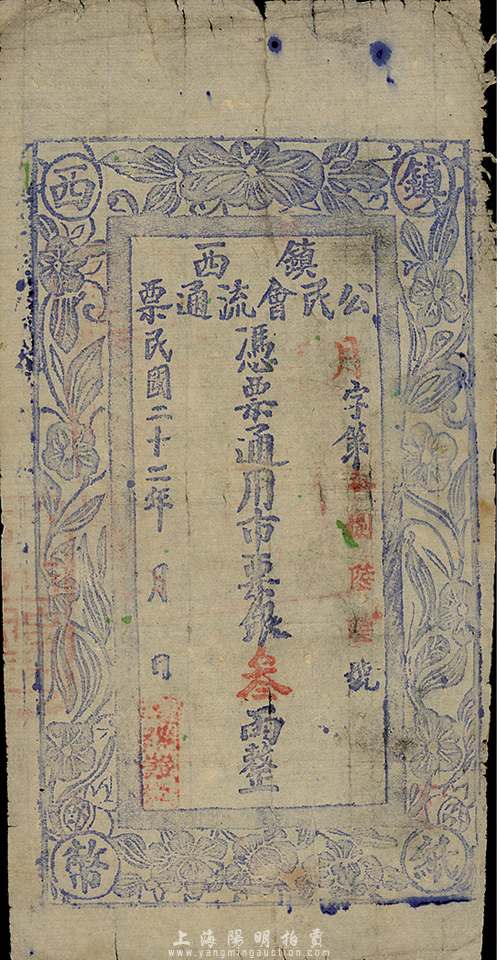 鎮西
紙幣
鎮西
公民會流通票
月字第捌陸號
憑票通用市票銀叁兩整
民國二十二年 月 日
上海陽明拍賣
www.yangmingauction.com